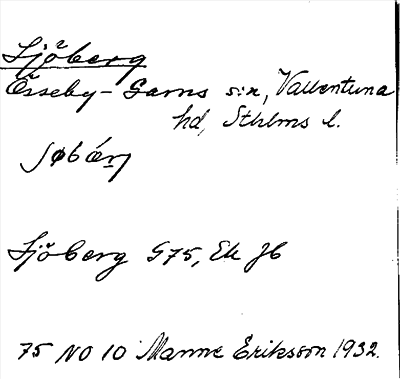 Sjöberg
Össeby-Garns s:n, Vallentuna
hd, Sthlms l.
Sjöberg G75, Ek Jb
75 NO 10 Manne Eriksson 1932.